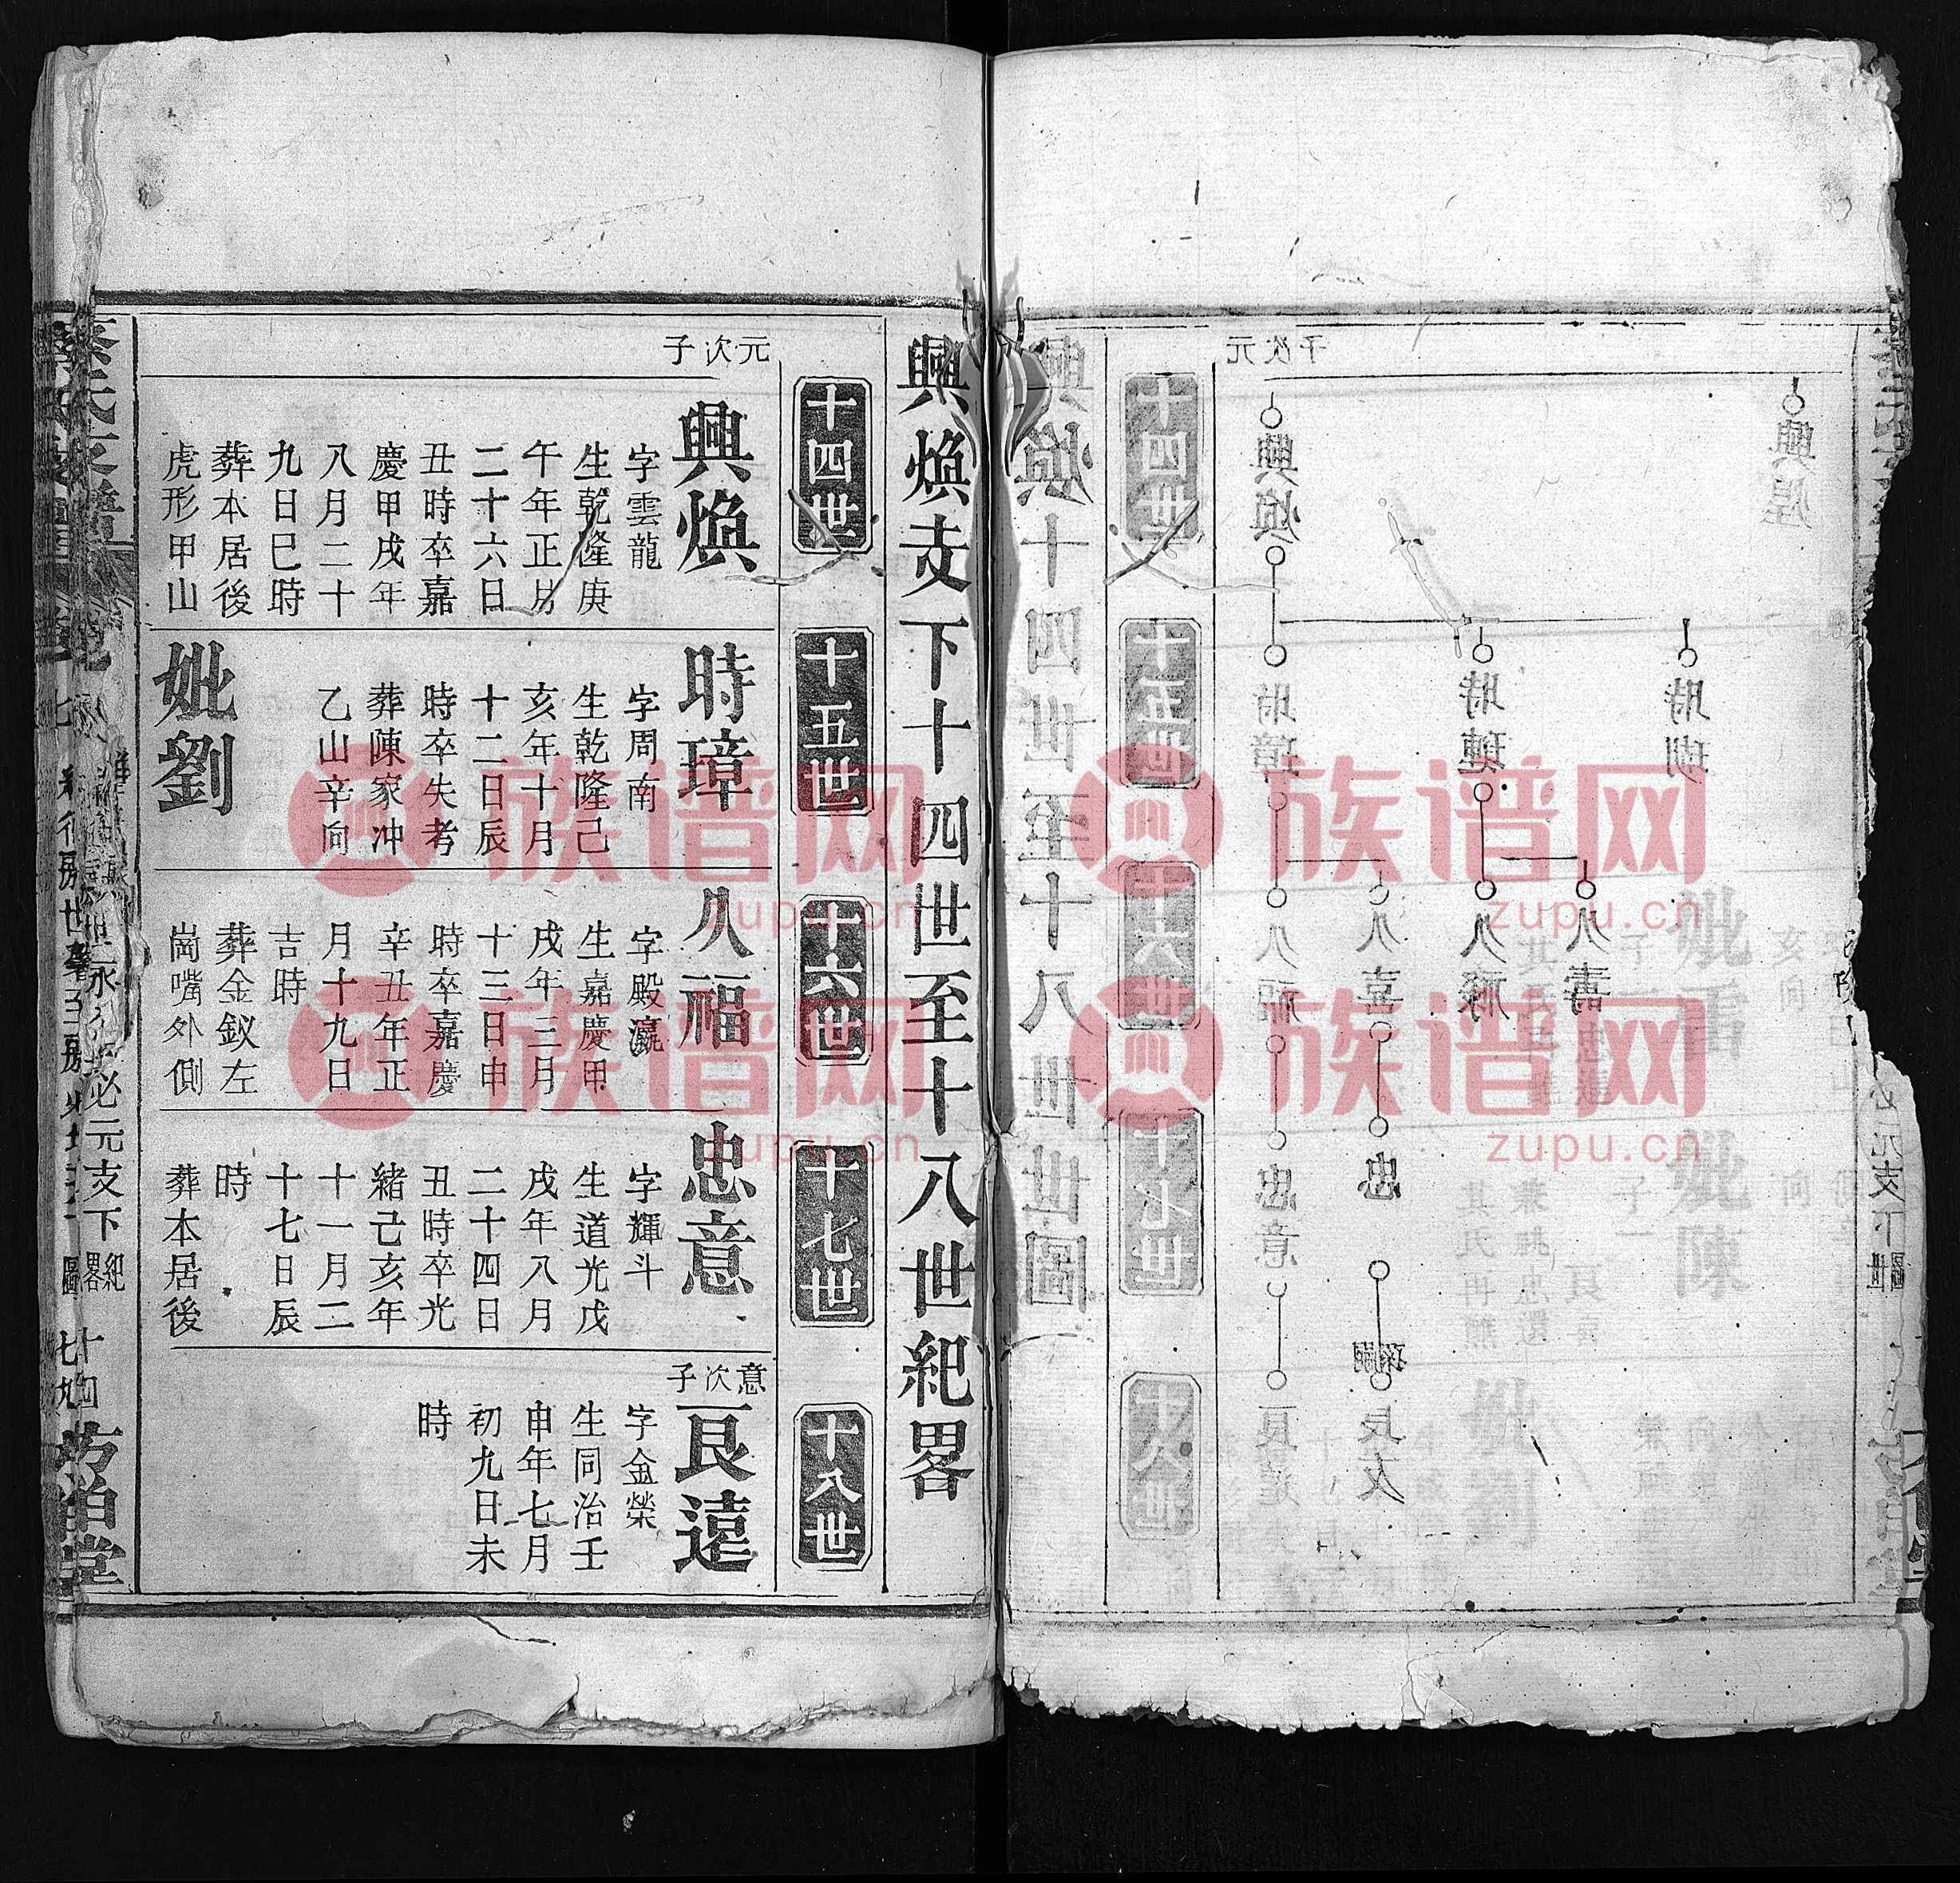 興煥十四世至十八世世圖
十四世
十五世
十六世
十七世
十八世
元次子
興煥
時璋
久福
忠意
良遠
久喜
忠
嗣
良友
時璉
久壽
時瑚
興煌
妣雷
妣陳
興煥支下十四世至十八世紀畧
十四世
十五世
十六世
十七世
十八世
元次子
興煥
字雲龍
生乾隆庚
午年正月
二十六日
丑時卒嘉
慶甲戌年
八月二十
九日巳時
葬本居後
虎形甲山
時璋
字周南
生乾隆己
亥年十月
十二日辰
時卒失考
葬陳家冲
乙山辛向
妣劉
久福
字殿瀛
生嘉慶甲
戌年三月
十三日申
時卒嘉慶
辛丑年正
月十九日
吉時
葬金釵左
崗嘴外側
忠意
字輝斗
生道光戊
戌年八月
二十四日
丑時卒光
緒己亥年
十一月二
十七日辰
時
葬本居後
意次子
良遠
字金榮
生同治壬
申年七月
初九日未
時
必元支下
紀畧
族谱网
zupu.cn
族谱网
zupu.cn
族谱网
zupu.cn
族谱网
zupu.cn